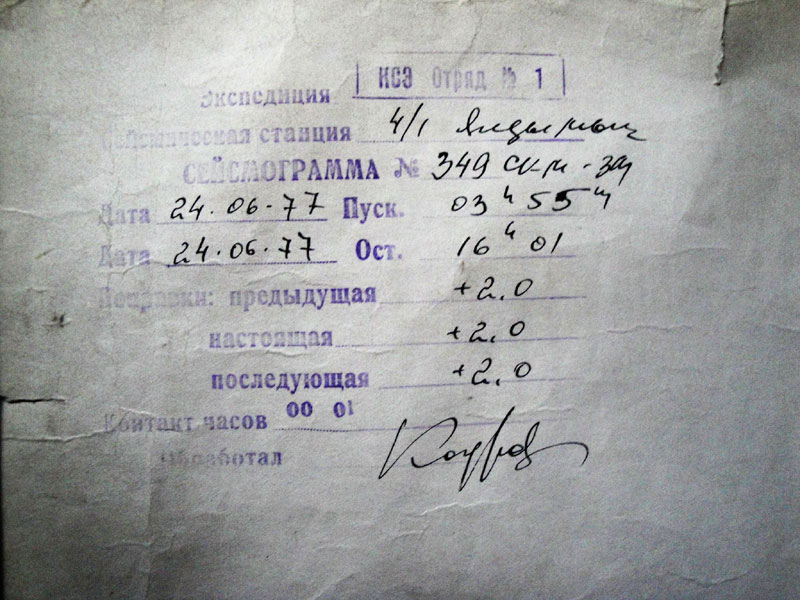 Экспедиция ИСЭ Отряд № 1
Сейсмическая станция ч/1
СЕЙСМОГРАММА № 349 скм-3
Дата 24.06.77 Пуск. 03ч 55м
Дата 24.06.77 Ост. 16ч 01
Поправки: предыдущая +2.0
настоящая +2.0
последующая +2.0
Контакт часов 00 01
Обработал